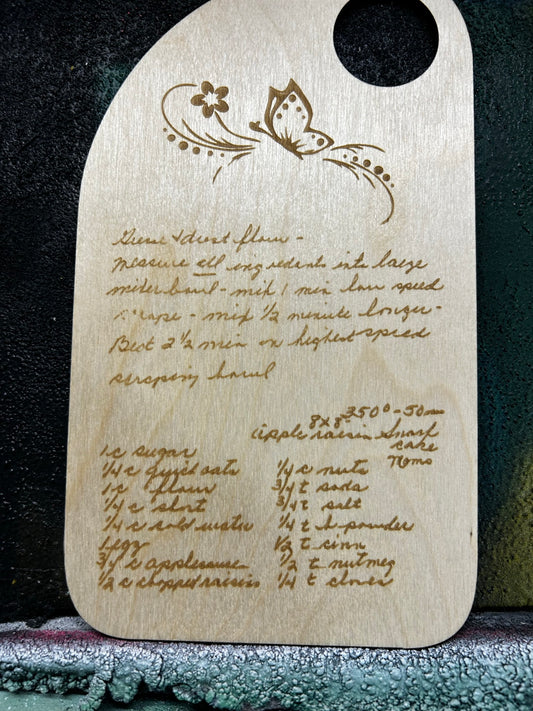 Grease & dust flour -
Measure all ingredients into large
mixer bowl - mix 1 min low speed
scrape - mix 1/2 minute longer -
Beat 2 1/2 min on highest speed
scraping bowl
350° - 50 min
8x8
apple raisin Snack
cake
Memo
1 c sugar
1/4 c quick oats
1 c flour
1/4 c short
1/4 c cold water
1 egg
3/4 c applesauce
1/2 c chopped raisins
1/4 c nuts
3/4 t soda
3/4 t salt
1/4 t b. powder
1/2 t cinn
1/2 t nutmeg
1/4 t cloves